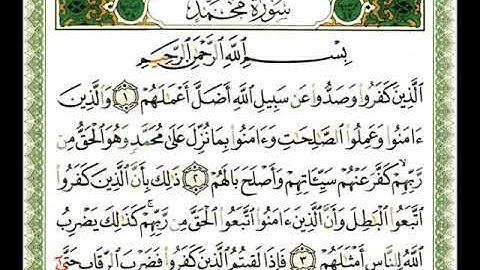 سورة محمد
بِسْمِ اللَّهِ الرَّحْمَٰنِ الرَّحِيمِ
الَّذِينَ كَفَرُوا وَصَدُّوا عَن سَبِيلِ اللَّهِ أَضَلَّ أَعْمَٰلَهُمْ ١ وَالَّذِينَ
ءَامَنُوا وَعَمِلُوا الصَّٰلِحَٰتِ وَءَامَنُوا بِمَا نُزِّلَ عَلَىٰ مُحَمَّدٍ وَهُوَ الْحَقُّ مِن
رَّبِّهِمْ كَفَّرَ عَنْهُمْ سَيِّـَٔاتِهِمْ وَأَصْلَحَ بَالَهُمْ ٢ ذَٰلِكَ بِأَنَّ الَّذِينَ كَفَرُوا
اتَّبَعُوا الْبَٰطِلَ وَأَنَّ الَّذِينَ ءَامَنُوا اتَّبَعُوا الْحَقَّ مِن رَّبِّهِمْ ۚ كَذَٰلِكَ يَضْرِبُ
اللَّهُ لِلنَّاسِ أَمْثَٰلَهُمْ ٣ فَإِذَا لَقِيتُمُ الَّذِينَ كَفَرُوا فَضَرْبَ الرِّقَابِ حَتَّىٰ